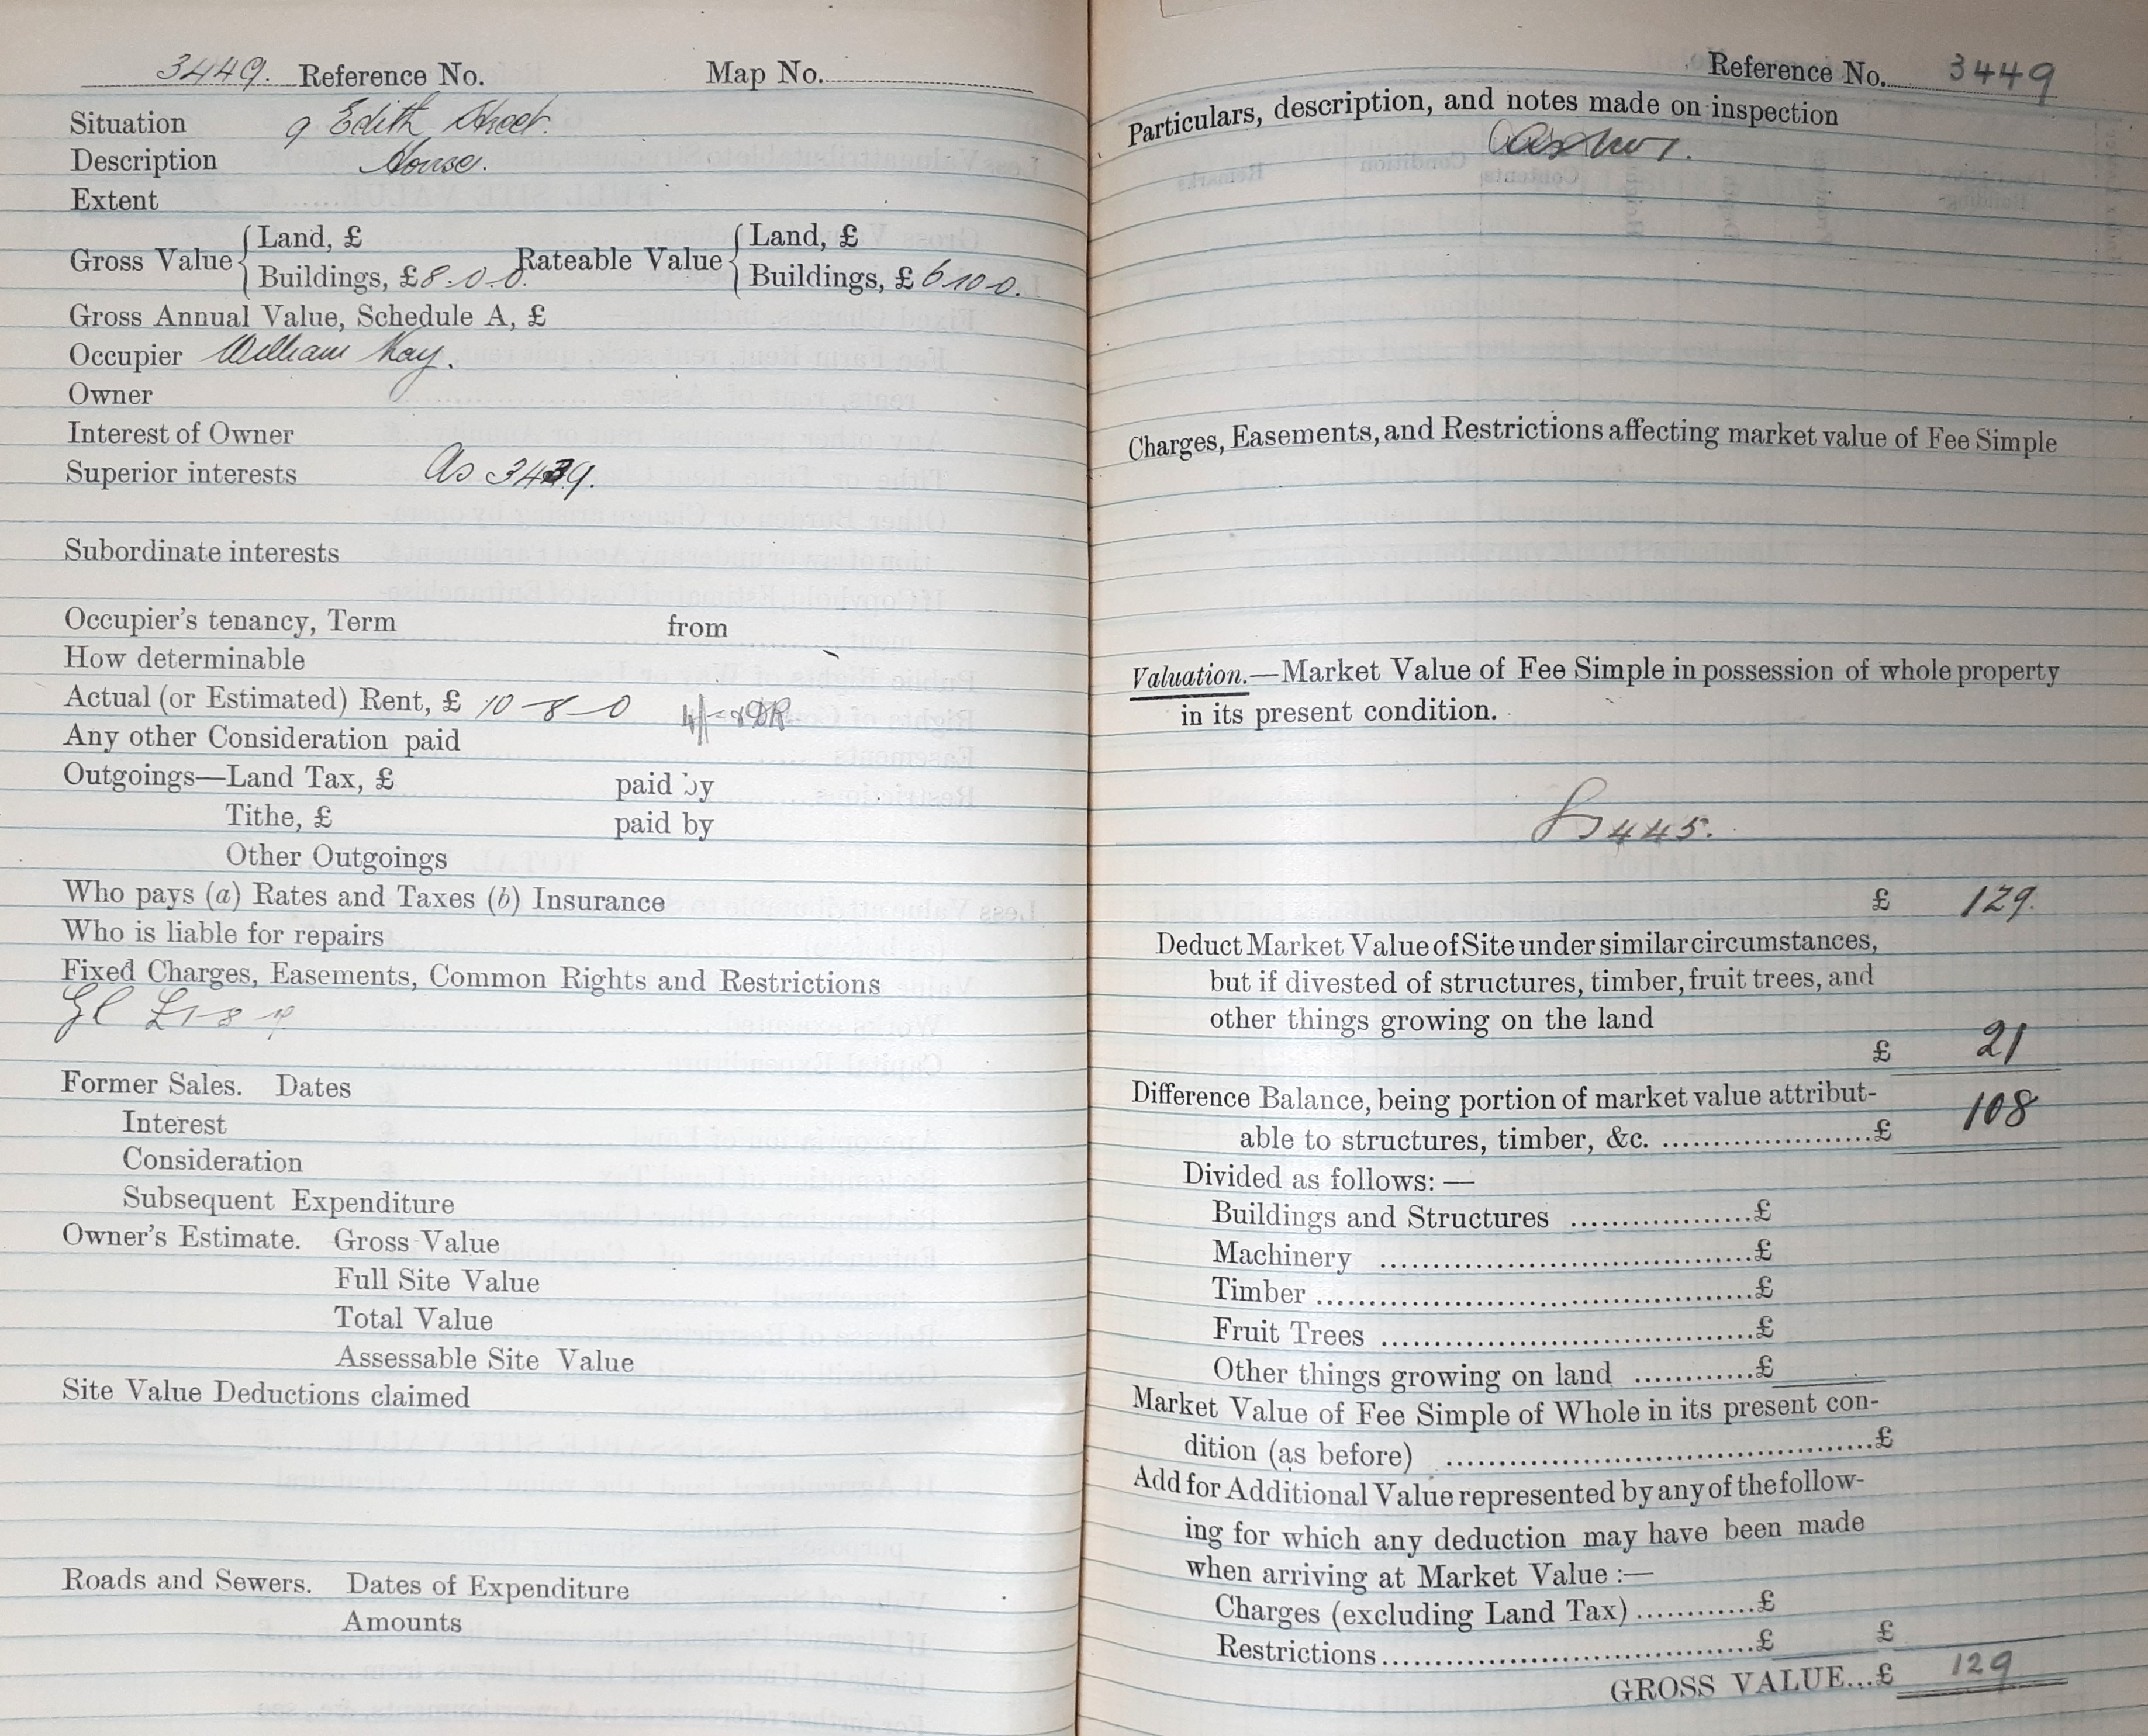 3449. Reference No. Map No.
Situation 9 Edith Street.
Description House.
Extent
Gross Value { Land, £ Rateable Value { Land, £
Buildings, £ 8.0.0. Buildings, £ 6.10.0.
Gross Annual Value, Schedule A, £
Occupier William Kay.
Owner
Interest of Owner
Superior interests As 3439.
Subordinate interests
Occupier's tenancy, Term from
How determinable
Actual (or Estimated) Rent, £ 10-8-0 4/-
Any other Consideration paid
Outgoings—Land Tax, £ paid by
Tithe, £ paid by
Other Outgoings
Who pays (a) Rates and Taxes (b) Insurance
Who is liable for repairs
Fixed Charges, Easements, Common Rights and Restrictions
£1-8-
Former Sales. Dates
Interest
Consideration
Subsequent Expenditure
Owner's Estimate. Gross Value
Full Site Value
Total Value
Assessable Site Value
Site Value Deductions claimed
Roads and Sewers. Dates of Expenditure
Amounts
Reference No. 3449
Particulars, description, and notes made on inspection
Charges, Easements, and Restrictions affecting market value of Fee Simple
Valuation.—Market Value of Fee Simple in possession of whole property
in its present condition.
445.
£ 129.
Deduct Market Value of Site under similar circumstances,
but if divested of structures, timber, fruit trees, and
other things growing on the land
£ 21
Difference Balance, being portion of market value attribut-
able to structures, timber, &c. ......................£ 108
Divided as follows:—
Buildings and Structures ..................£
Machinery ....................................£
Timber ..........................................£
Fruit Trees ....................................£
Other things growing on land ............£
Market Value of Fee Simple of Whole in its present con-
dition (as before) ..........................................£
Add for Additional Value represented by any of the follow-
ing for which any deduction may have been made
when arriving at Market Value :—
Charges (excluding Land Tax) ............£
Restrictions ....................................£ £
GROSS VALUE...£ 129